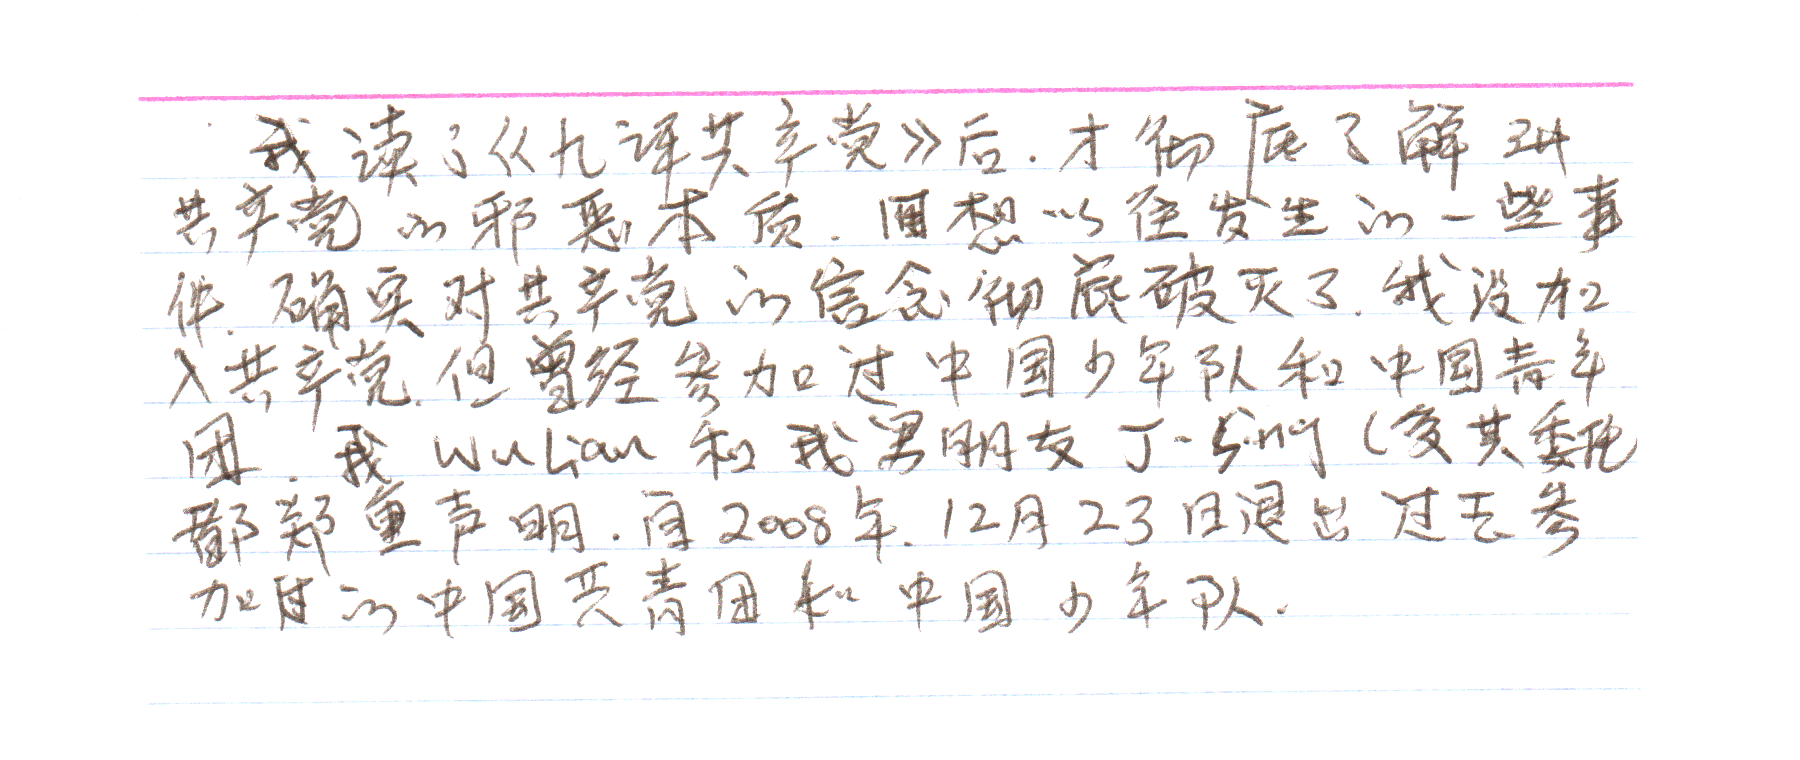 我读了《九评共产党》后.才彻底了解
共产党的邪恶本质.回想以往发生的一些事
件.确实对共产党的信念彻底破灭了.我没加
入共产党.但曾经参加过中国少年队和中国青年
团.我 WuLian 和我男朋友 (受其委托
郑重声明.自2008年.12月23日退出过去参
加过的中国共青团和中国少年队.